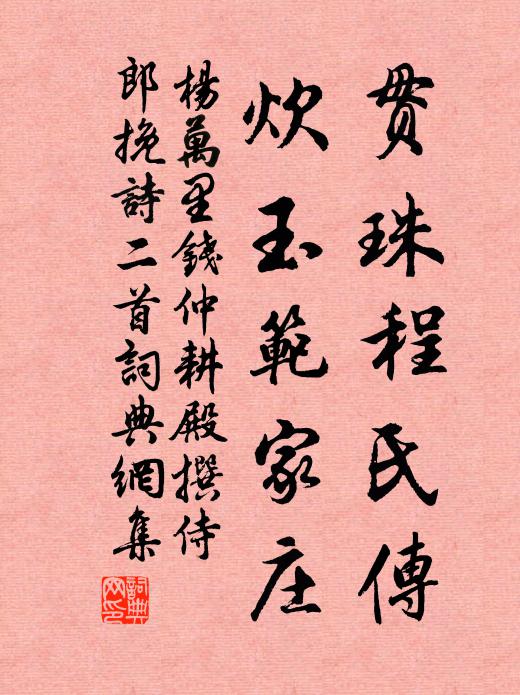 貫珠程氏傳
炊玉範家庄
楊萬里錢仲耕殿撰侍
郎挽詩二首詞典網集
詞典網印